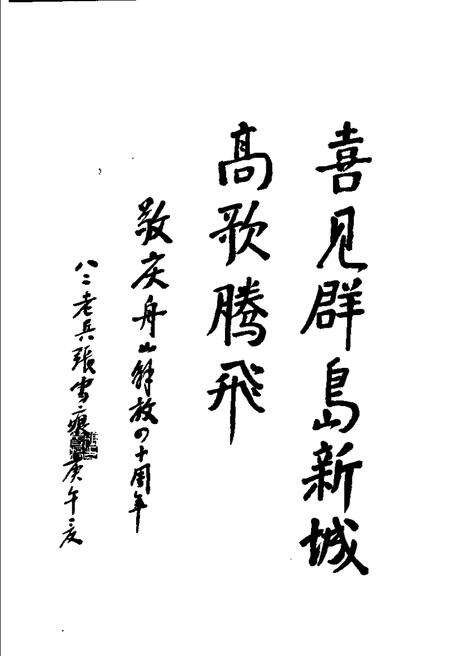 喜見群島新城
高歌騰飛
敬庆舟山解放四十周年
八二老兵張雪痕庚午夏